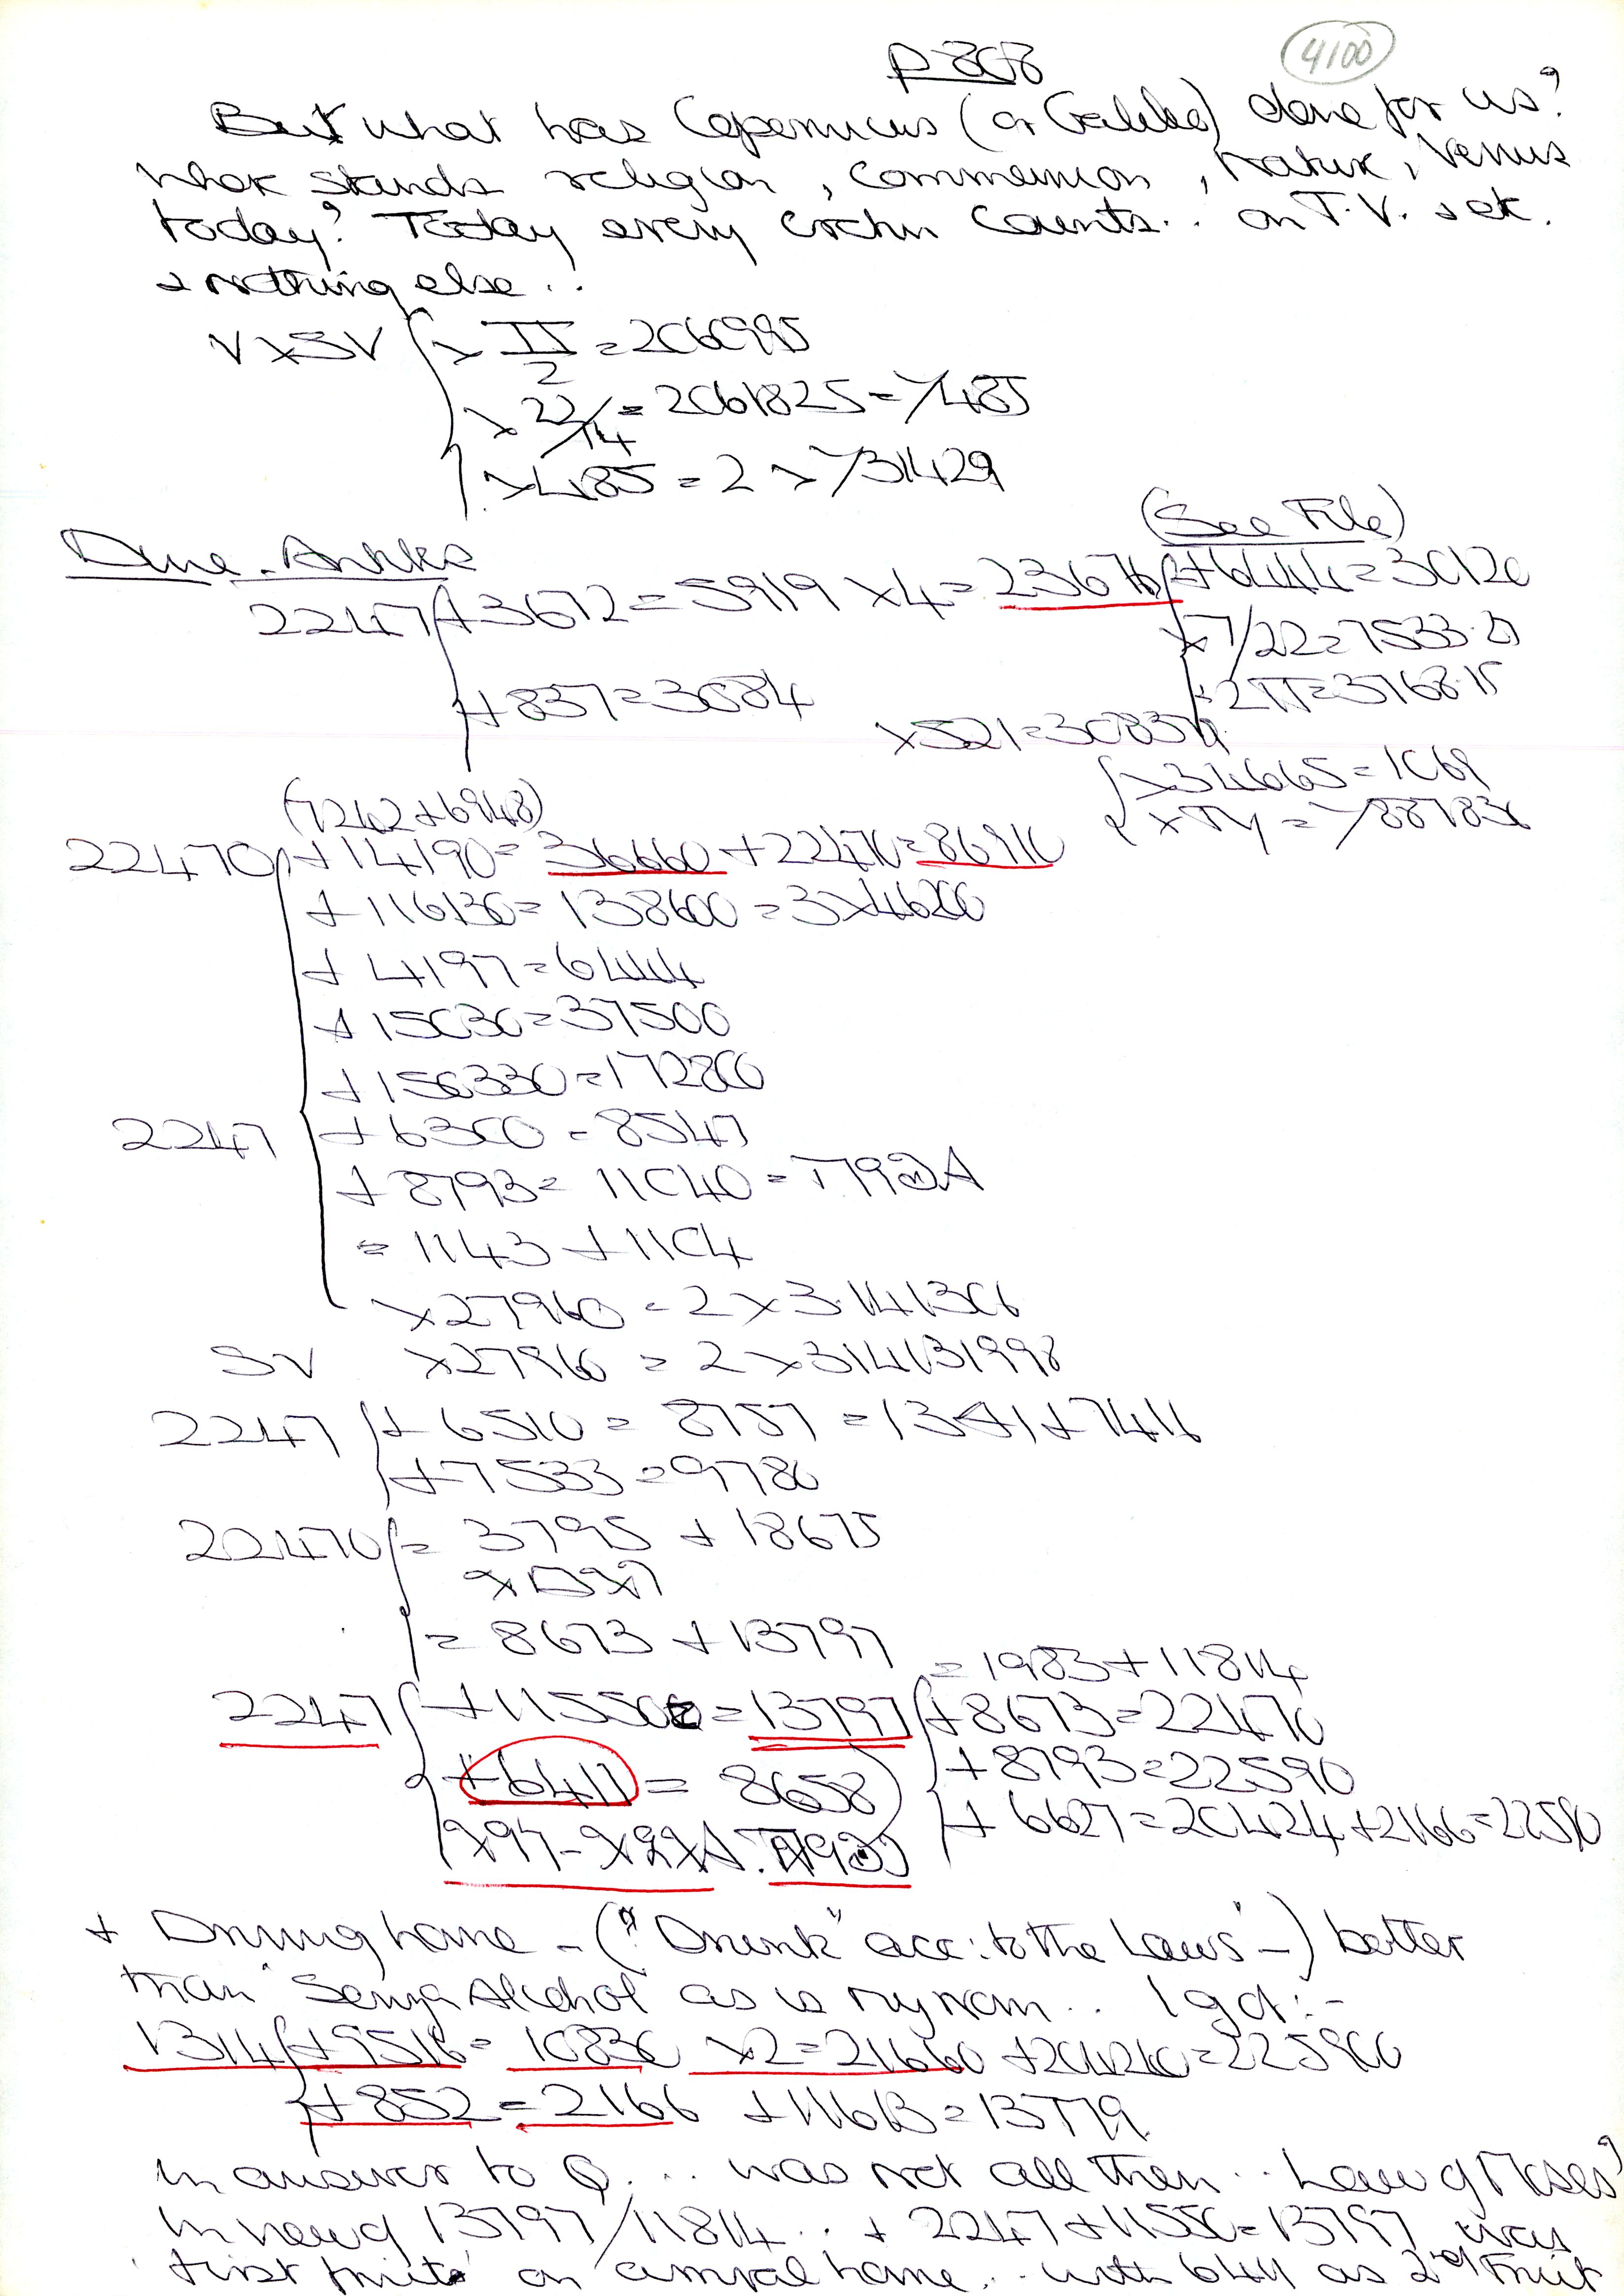 p 808
4100
But what has Copernicus (or Galileo) done for us?
What stands religion, Communion, Nature, Venus
today? Today every Counts.. on T.V. set.
& nothing else..
V x SV x II/2 = 2060985
x 22/14 = 2061825 = 7485
x 485 = 2 x 731429
(See File)
2247 + 3672 = 5919 x 4 = 23676 + 6444 = 30120
x 7/22 = 7533.
+ 837 = 3084
÷ 2π = 3768.15
x 521 = 30837
x 34665 = 1069
(7242 + 6948)
22470 + 14190 = 36660 + 22470 = 86910
+ 116130 = 138600 = 3 x 46200
+ 4197 = 6444
+ 15030 = 37500
+ 150330 = 172800
2247 + 6300 = 8547
+ 8793 = 11040 =
= 1143 + 1104
x 27960 = 2 x 3.141306
SV x 27960 = 2 x 314131998
2247 + 6510 = 8757 = + 7416
+ 7533 = 9780
22470 = 3795 + 18675
= 8673 + 13797
= 1983 + 11814
2247 + 11550 = 13797 + 8673 = 22470
+ 6411 = 8658
+ 8793 = 22590
+ 6627 = 20424 + 2166 = 22590
+ Driving home - ("Drunk" acc: to the Laws -) better
than Senza Alcohol as is my norm.. I got:-
1314 + 9516 = 10830 x 2 = 21660 + 204240 = 225900
+ 852 = 2166 + 11613 = 13779
In answer to Q... was not all then.. Law of Moses?
In new of 13797/11814.. + 2247 + 11550 = 13797 was
first fruits on arrival home.. with 6411 as 2nd Fruit